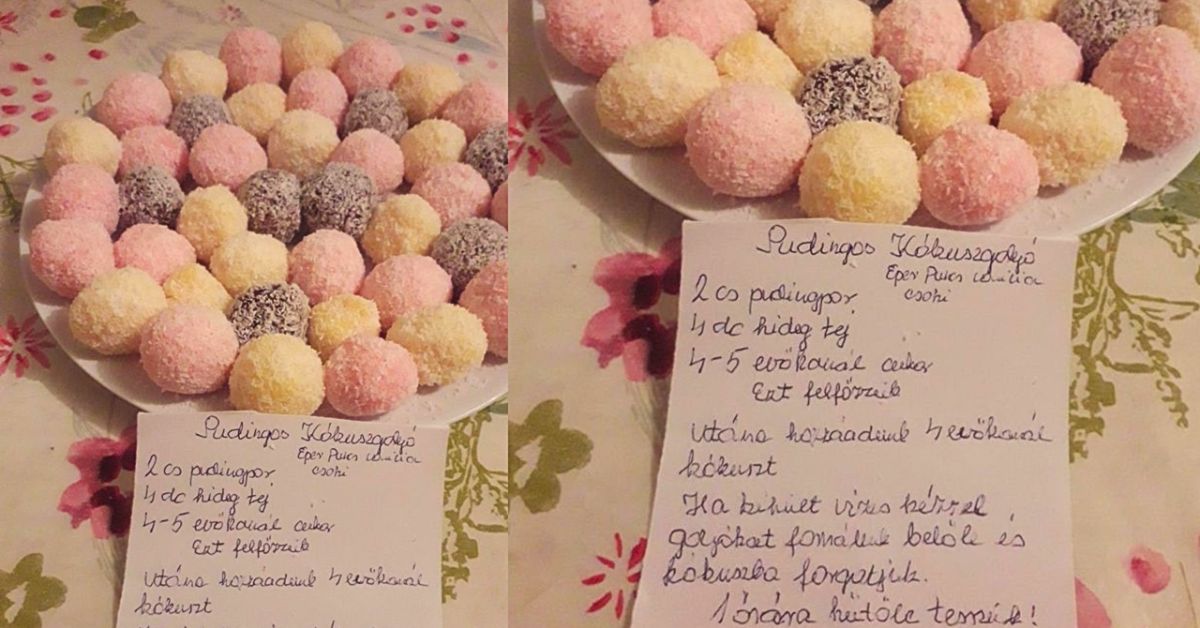 Pudingos Kókuszgolyó
Eper Puncs vanília
csoki
2 cs pudingpor
4 dc hideg tej
4-5 evőkanál cukor
Ezt felfőzzük
utána hozzáadunk 4 evőkanál
kókuszt
Pudingos Kókuszgolyó
Eper Puncs vanília
csoki
2 cs pudingpor
4 dc hideg tej
4-5 evőkanál cukor
Ezt felfőzzük
utána hozzáadunk 4 evőkanál
kókuszt
Ha kihűlt vizes kézzel
golyókat formálunk belőle és
kókuszba forgatjuk.
1 órára hűtőbe tesszük!